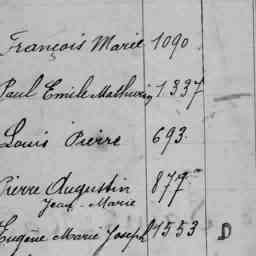 François Marie 1090
Paul Emile Mathurin 1337
Louis Pierre 693
Pierre Augustin 877
Jean-Marie
Eugène Marie Joseph 1553 D